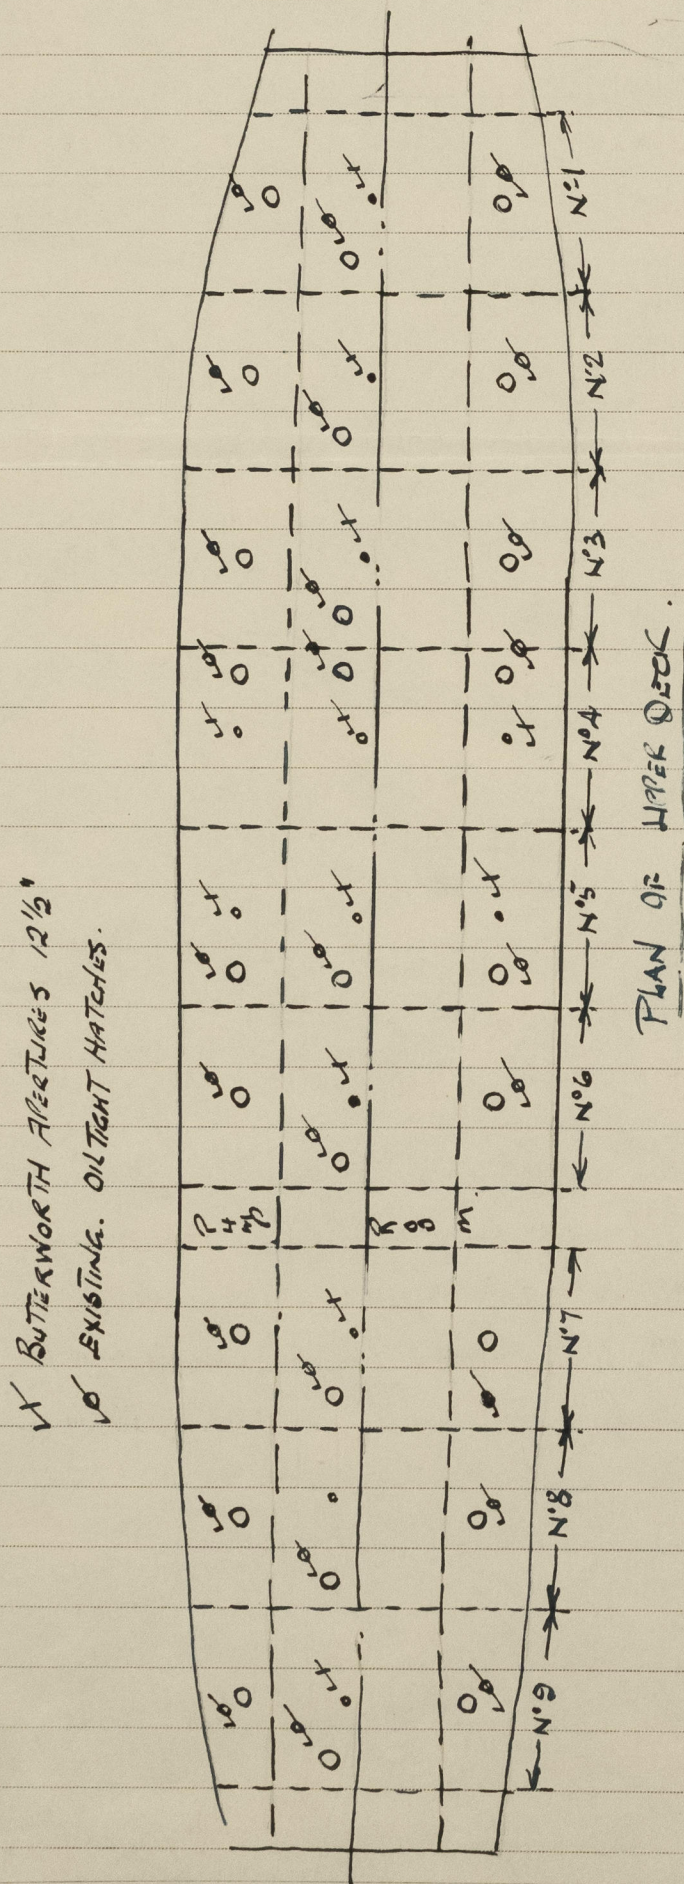 BUTTERWORTH APERTURES 12½"
EXISTING. OILTIGHT HATCHES.
Pump Room
No.1
No.2
No.3
No.4
No.5
No.6
No.7
No.8
No.9
PLAN OF UPPER DECK.